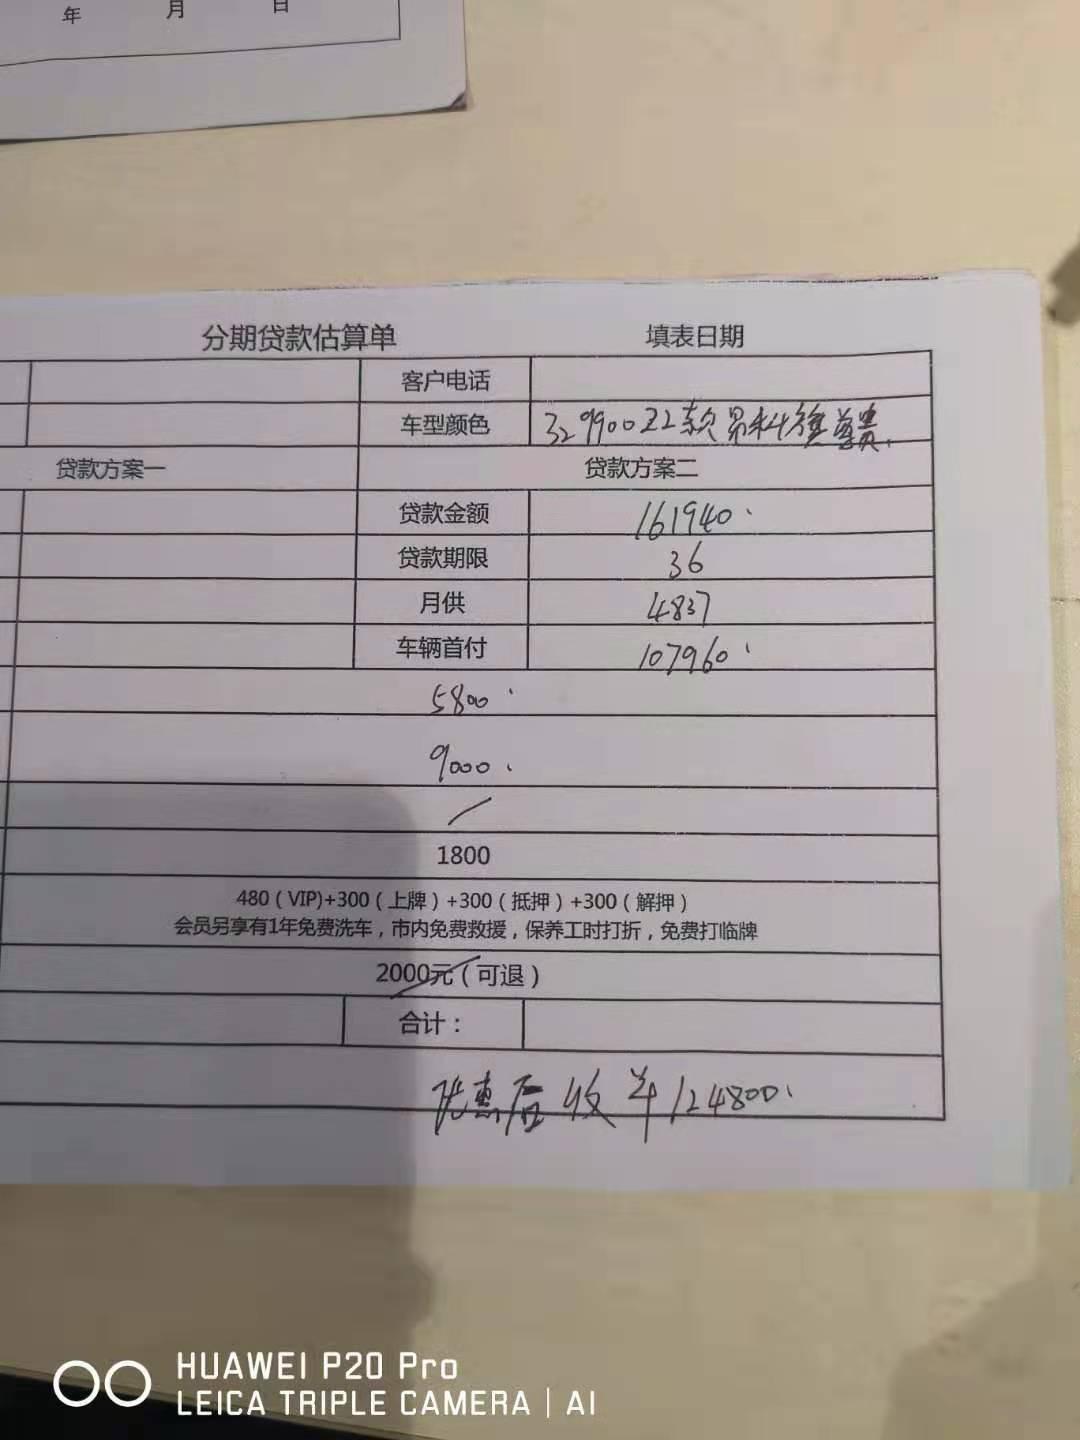 年 月 日
分期贷款估算单 填表日期
客户电话
车型颜色 329900 22款 昂科 尊贵
贷款方案一 贷款方案二
贷款金额 161940
贷款期限 36
月供 4837
车辆首付 107960
5800
9000
/
1800
480（VIP)+300（上牌）+300（抵押）+300（解押）
会员另享有1年免费洗车，市内免费救援，保养工时打折，免费打临牌
2000元（可退）
合计：
优惠后 收 124800
HUAWEI P20 Pro
LEICA TRIPLE CAMERA | AI